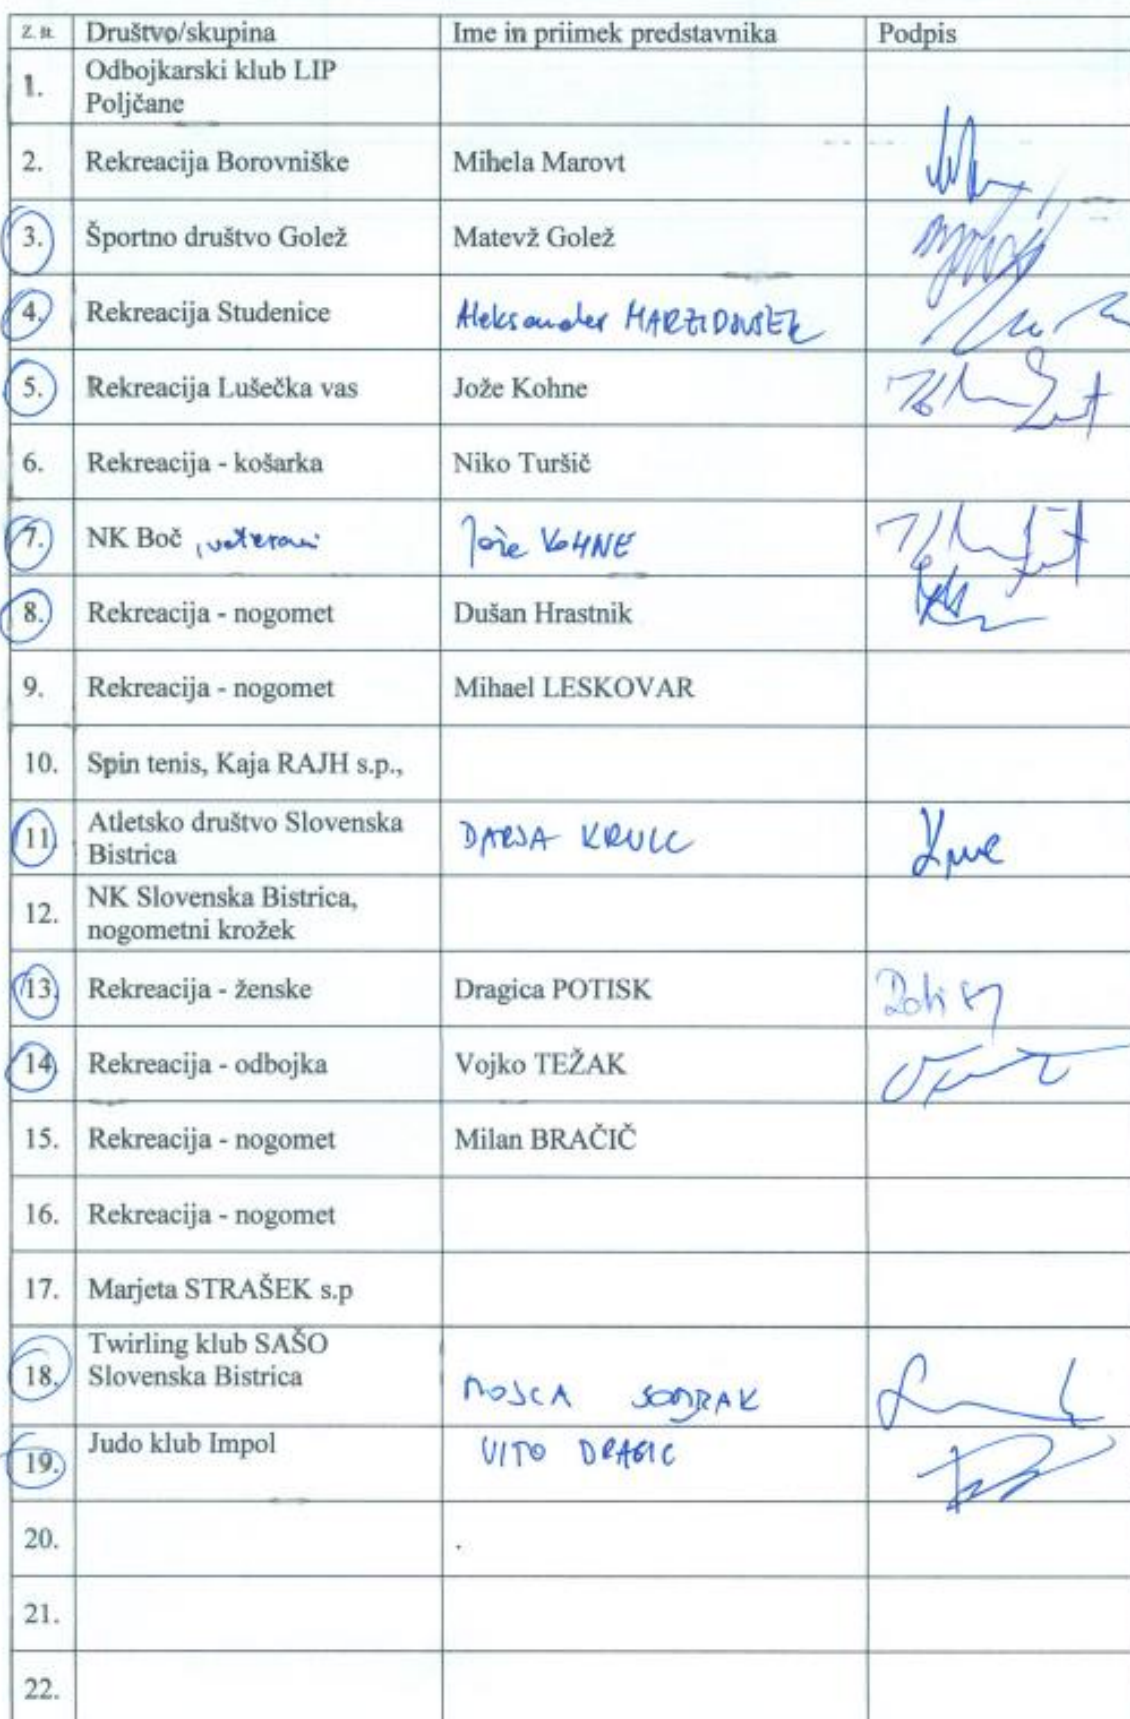 Z. št. Društvo/skupina Ime in priimek predstavnika Podpis
1. Odbojkarski klub LIP
Poljčane
2. Rekreacija Borovniške Mihela Marovt
3. Športno društvo Golež Matevž Golež
4. Rekreacija Studenice Aleksander
5. Rekreacija Lušečka vas Jože Kohne
6. Rekreacija - košarka Niko Turšič
7. NK Boč , veterani Jože KOHNE
8. Rekreacija - nogomet Dušan Hrastnik
9. Rekreacija - nogomet Mihael LESKOVAR
10. Spin tenis, Kaja RAJH s.p.,
11. Atletsko društvo Slovenska
Bistrica DARJA KRULC
12. NK Slovenska Bistrica,
nogometni krožek
13. Rekreacija - ženske Dragica POTISK
14. Rekreacija - odbojka Vojko TEŽAK
15. Rekreacija - nogomet Milan BRAČIČ
16. Rekreacija - nogomet
17. Marjeta STRAŠEK s.p
18. Twirling klub SAŠO
Slovenska Bistrica MOJCA SOMRAK
19. Judo klub Impol VITO DRAGIC
20.
21.
22.